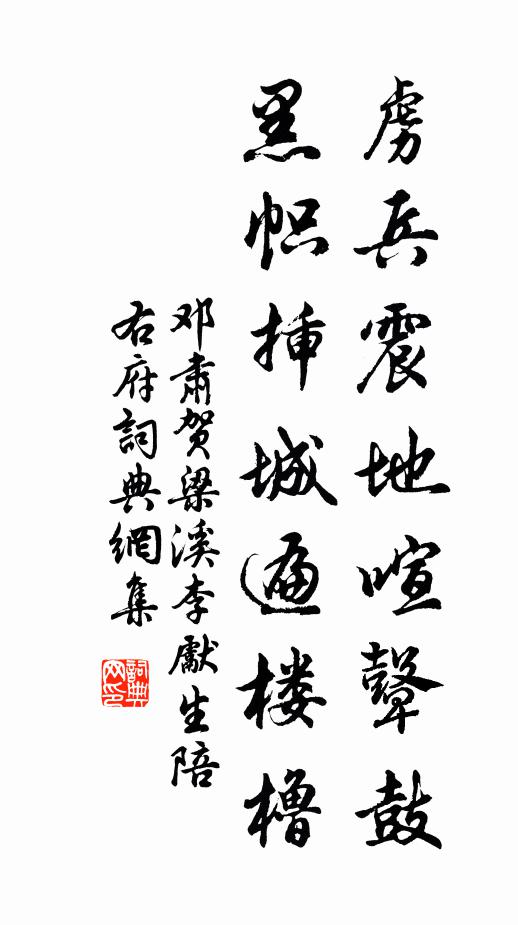 虏兵震地喧鼙鼓
黑帜插城遍楼橹
邓肃贺梁溪李献生陪
右府詞典網集
詞典网印